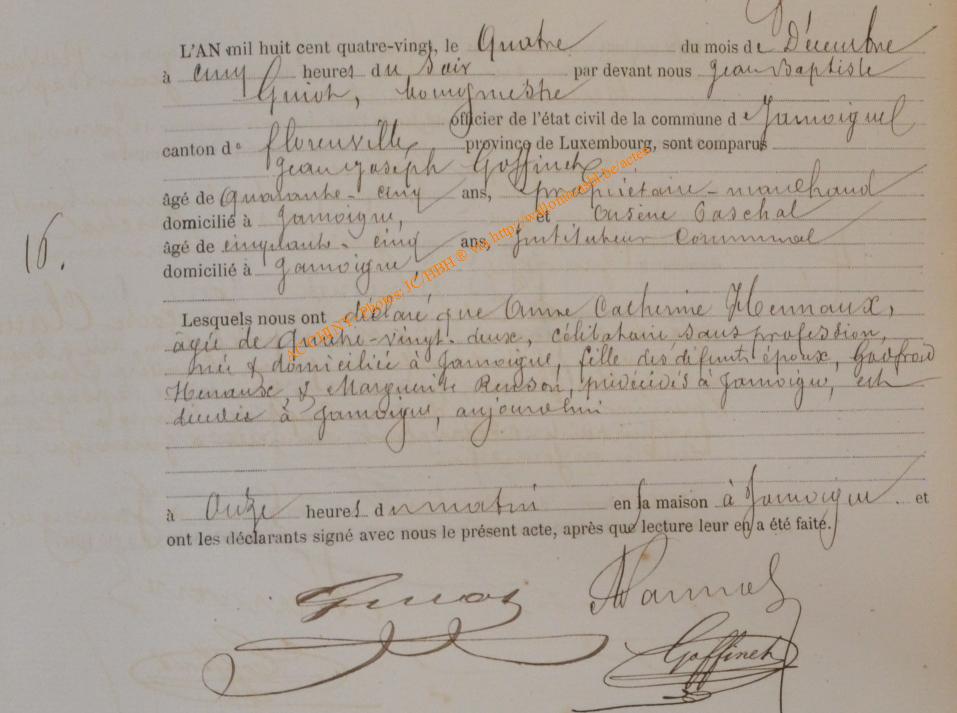 L'AN mil huit cent quatre-vingt, le Quatre du mois de Décembre
à cinq heures du soir par devant nous Jean Baptiste
Guiot, bourgmestre
officier de l'état civil de la commune de Jamoigne
canton de florenville province de Luxembourg, sont comparus
Jean Joseph Goffinet
âgé de Quarante-cinq ans, propriétaire-marchand
domicilié à Jamoigne, et Paschal
16.
âgé de cinquante-cinq ans, Instituteur Communal
domicilié à Jamoigne,
Lesquels nous ont déclaré que Anne Catherine Hennaux,
âgée de Quatre-vingt-deux, célibataire sans profession,
née & domiciliée à Jamoigne, fille des défunts époux, Godfroid
Henaux, & Marguerite Renson, prédécédés à Jamoigne, est
décédée à Jamoigne, aujourdhui
à Onze heures du matin en sa maison à Jamoigne et
ont les déclarants signé avec nous le présent acte, après que lecture leur en a été faite.
Guiot
Goffinet
ACTCHINY Photos: JC/HBH ® via http://wallonica